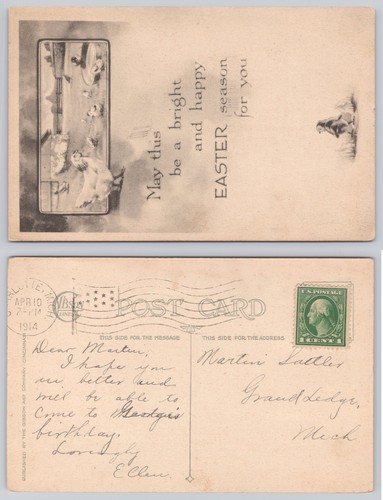 May this
be a bright
and happy
EASTER season
for you
APR 10
1914
POST CARD
THIS SIDE FOR THE MESSAGE
THIS SIDE IS FOR THE ADDRESS
U.S. POSTAGE
1 CENT 1
Dear Martin,
I hope you
are better and
will be able to
come to George's
birthday.
Lovingly
Ellen.
Martin Sattler
Grand Ledge,
Mich